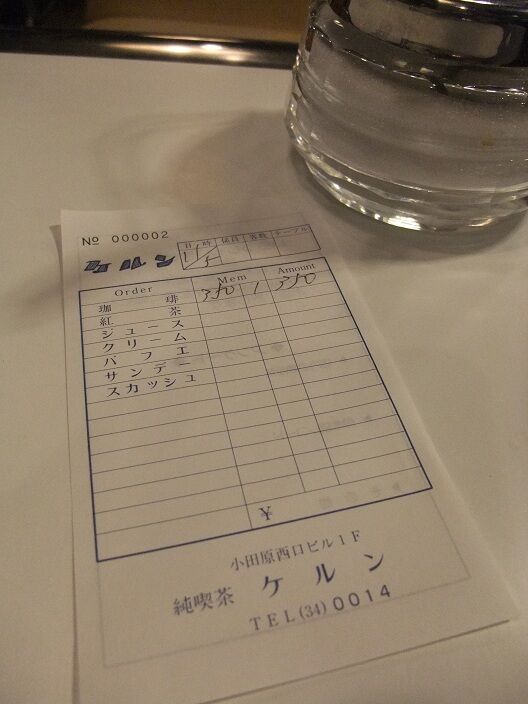 No 000002
ケルン
日 時 係員 客数 テーブル
Order Mem Amount
珈琲 1
紅茶
ジュース
クリーム
パフェ
サンデー
スカッシュ
¥
小田原西口ビル1F
純喫茶 ケルン
TEL(34)0014